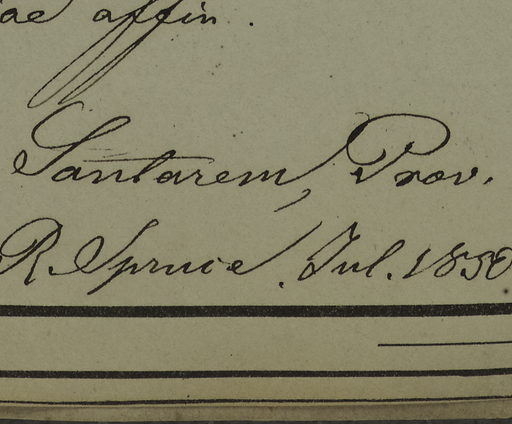 ae affin.
Santarem, Prov.
R. Spruce. Jul. 1850